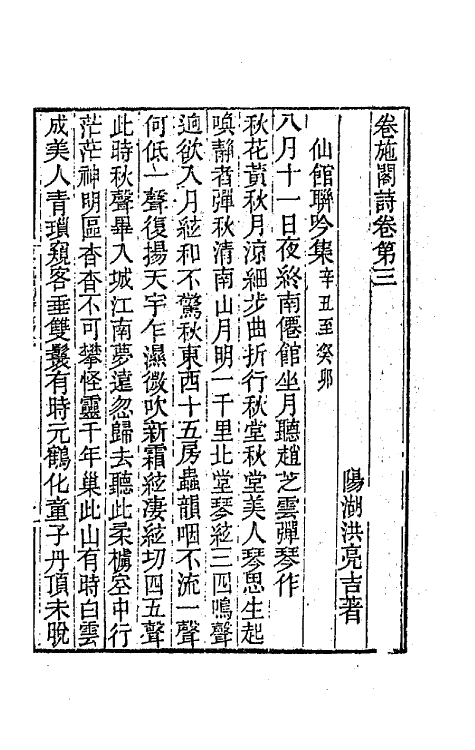 卷施閣詩卷第三
陽湖洪亮吉著
仙館聯吟集辛丑至癸卯
八月十一日夜終南僊館坐月聽趙芝雲彈琴作
秋花黃秋月涼細步曲折行秋堂秋堂美人琴思生起
喚靜者彈秋清南山月明一千里北堂琴絃三四鳴聲
迴欲入月絃和不驚秋東西十五房蟲韻咽不流一聲
何低一聲復揚天宇乍濕微吹新霜絃淒絃切四五聲
此時秋聲畢入城江南夢遠忽歸去聽此柔櫓空中行
茫茫神明區杳杳不可攀怪靈千年巢此山有時白雲
成美人青瑣窺客垂雙鬟有時元鶴化童子丹頂未脫